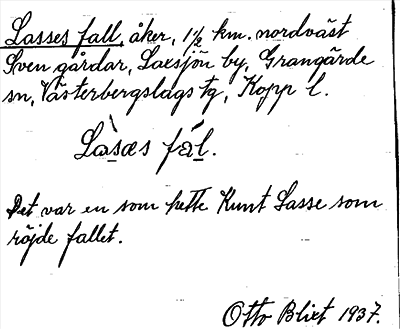 Lasses fall, åker, 1 1/2 km. nordväst
Sven gårdar, Laxsjön by, Grangärde
sn, Västerbergslags tg, Kopp l.
Làsæs fál.
Det var en som hette Knut Lasse som
röjde fallet.
Otto Blixt 1937.